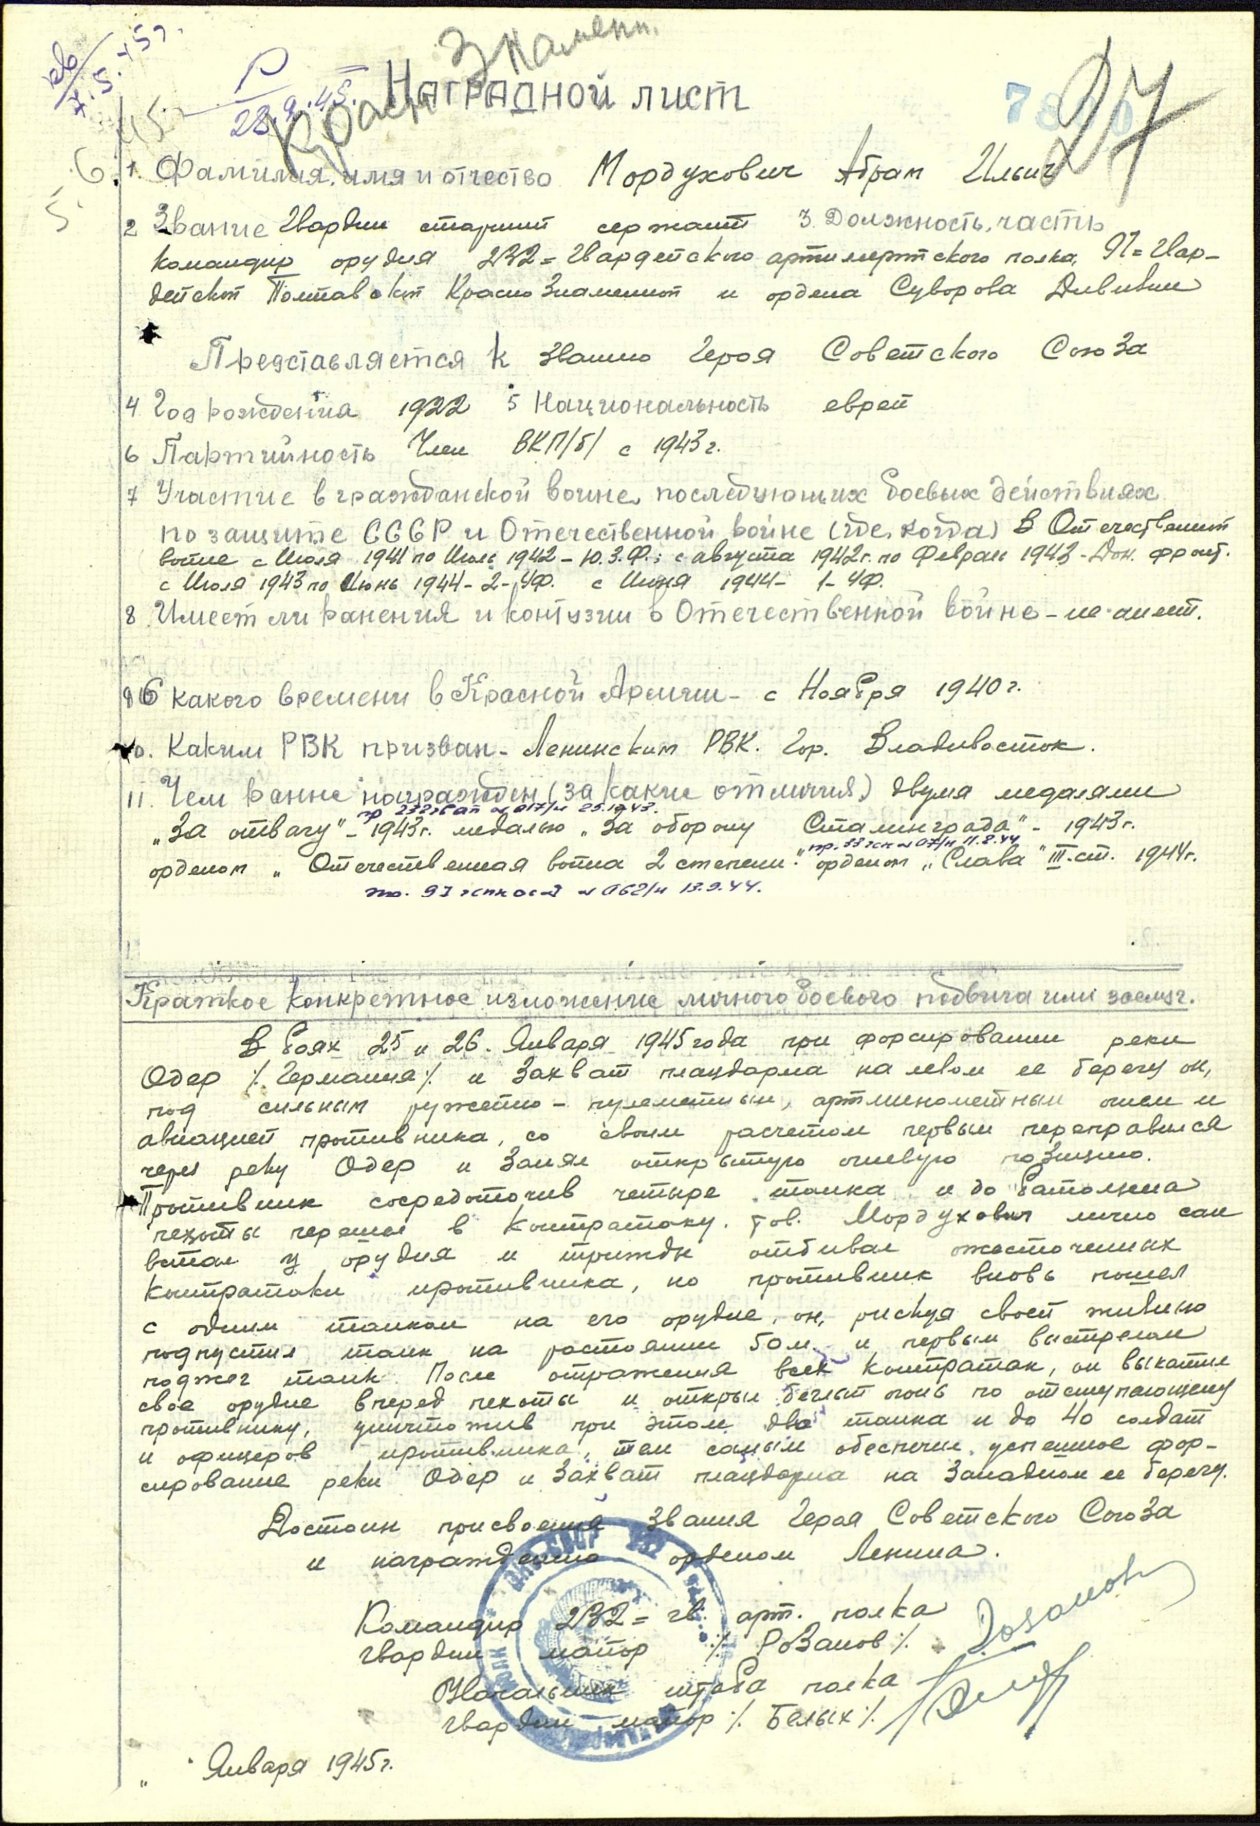 7.5.45г.
Р
23.2.45.
Красн Знамени.
27
Наградной лист
5.6.45
1. Фамилия, имя и отчество Мордухович Абрам Ильич
2 Звание Гвардии старший сержант 3. Должность, часть
командир орудия 232= Гвардейского артиллерийского полка, 97= Гвар-
дейской Полтавской Краснознаменной и ордена Суворова Дивизии
Представляется к званию Героя Советского Союза
4 Год рождения 1922 5 Национальность еврей
6 Партийность Член ВКП/б/ с 1943 г.
7 Участие в гражданской войне, последующих боевых действиях
по защите СССР и Отечественной войне (где, когда) В Отечественной
войне с Июля 1941 по Июль 1942 - Ю.З.Ф.; с августа 1942г. по Февраль 1943 - Дон. фронт.
с Июля 1943 по Июнь 1944 - 2-УФ. с Июня 1944 - 1-УФ.
8. Имеет ли ранения и контузии в Отечественной войне - не имеет.
9 С какого времени в Красной Армии - с Ноября 1940 г.
10. Каким РВК призван - Ленинским РВК. Гор. Владивосток.
11. Чем ранее награжден (за какие отличия) двумя медалями
„За отвагу" - 1943г. медалью „За оборону Сталинграда" - 1943г.
орденом „Отечественная война 2 степени." орденом „Слава" III ст. 1944г.
Краткое конкретное изложение личного боевого подвига или заслуг.
В боях 25 и 26. Января 1945 года при форсировании реки
Одер /Германия/ и захват плацдарма на левом ее берегу он,
под сильным ружейно-пулеметным, артминометным огнем и
авиацией противника, со своим расчетом первым переправился
через реку Одер и занял открытую огневую позицию.
Противник сосредоточив четыре танка и до батальона
пехоты перешел в контратаку. Тов. Мордухович лично сам
встал у орудия и трижды отбивал ожесточенных
контратаки противника, но противник вновь пошел
с одним танком на его орудие, он, рискуя своей жизнью
подпустил танк на растоянии 50 м. и первым выстрелом
поджег танк. После отражения всех контратак, он выкатил
свое орудие вперед пехоты и открыл беглый огонь по отступающему
противнику, уничтожив при этом два танка и до 40 солдат
и офицеров противника, тем самым обеспечил успешное фор-
сирование реки Одер и захват плацдарма на Западном ее берегу.
Достоин присвоения звания Героя Советского Союза
и награждению орденом Ленина.
Командир 232= гв. арт. полка
гвардии майор /Розанов/.
Начальник штаба полка
гвардии майор /Белых/.
„ Января 1945г.